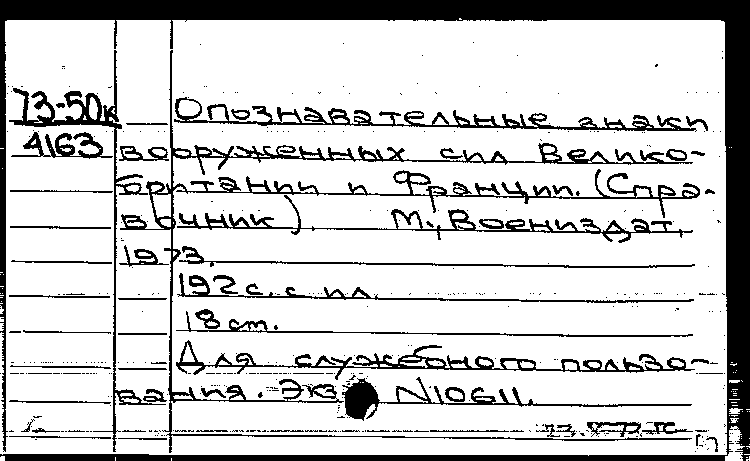 73-50к Опознавательные знаки
4163 вооруженных сил Велико-
британии и Франции. (Спра-
вочник). М., Воениздат,
1973.
192 с. с ил.
18 см.
Для служебного пользо-
вания. Экз N10611.